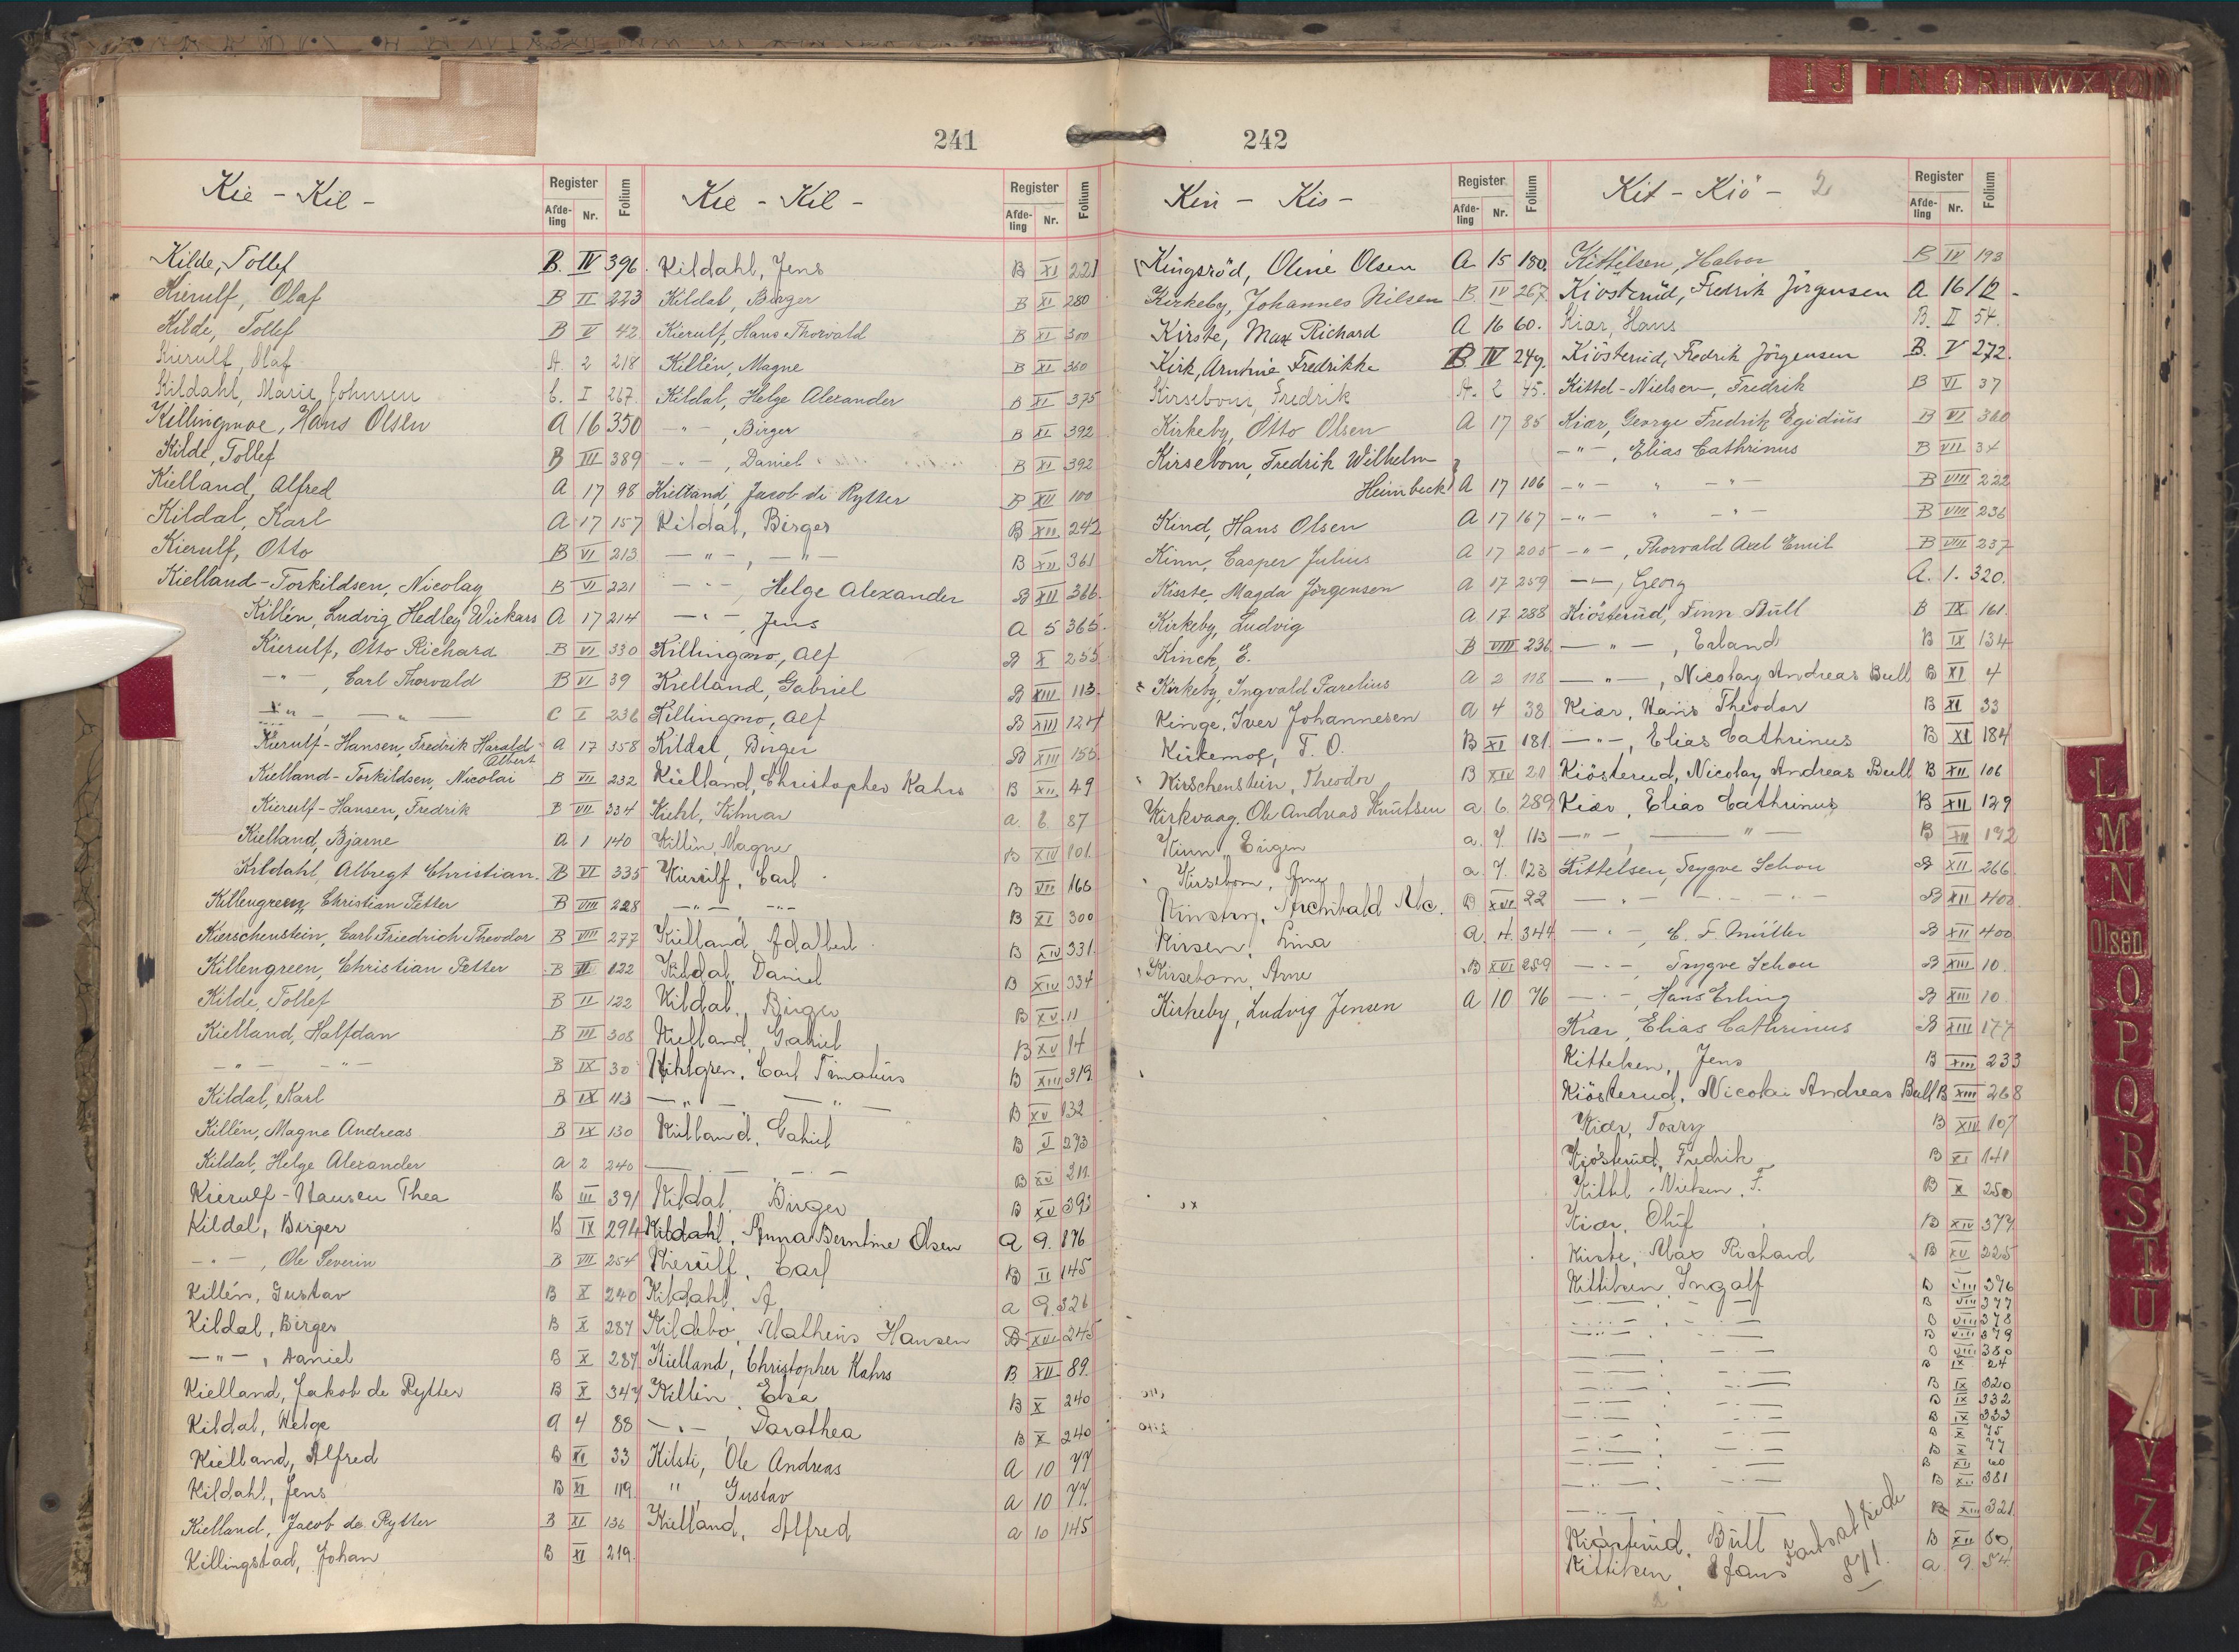 241
Kie - Kil -
Register Afde-ling Nr. Folium
Kilde, Tollef B. IV 396.
Kierulf, Olaf B II 223
Kilde, Tollef B V 42
Kierulf, Olaf A. 2 218
Kildahl, Marie Johnsen C. I 267.
Killingmoe, Hans Olsen A 16 350
Kilde, Tollef B III 389
Kielland, Alfred A 17 98
Kildal, Karl A 17 157
Kierulf, Otto B VI 213
Kielland-Torkildsen, Nicolay B VI 221
Killén, Ludvig Hedley Wickars A 17 214
Kierulf, Otto Richard B VI 330
-"-, Carl Thorvald B VI 39
-"-, -"- C I 236
Kierulf-Hansen, Fredrik Harald Albert A 17 358
Kielland-Torkildsen, Nicolai B VII 232
Kierulf-Hansen, Fredrik B VII 334
Kielland, Bjarne A 1 140
Kildahl, Albregt Christian. B VI 335
Killengreen, Christian Petter B VIII 228
Kierschenstein, Carl Friedrich Theodor B VIII 277
Killengreen, Christian Petter B II 122
Kilde, Tollef B II 122
Kielland, Halfdan B III 308
-"- -"- B IX 30
Kildal, Karl B IX 113
Killén, Magne Andreas B IX 130
Kildal, Helge Alexander A 2 240
Kierulf-Hansen Thea B III 391
Kildal, Birger B IX 294
-"-, Ole Severin B VIII 254
Killén, Gustav B X 240
Kildal, Birger B X 287
-"-, Daniel B X 287
Kielland, Jakob de Rytter B X 347
Kildal, Helge A 4 88
Kielland, Alfred B XI 33
Kildahl, Jens B XI 119
Kielland, Jacob de Rytter B XI 136
Killingstad, Johan B XI 219.
Kie - Kil -
Register Afde-ling Nr. Folium
Kildahl, Jens B XI 221
Kildal, Birger B XI 280
Kierulf, Hans Thorvald B XI 300
Killén, Magne B XI 360
Kildal, Helge Alexander B XI 375
-"-, Birger B XI 392
-"-, Daniel B XI 392
Kielland, Jacob de Rytter B XII 100
Kildal, Birger B XII 242
-"-, -"- B XII 361
-"- Helge Alexander B XII 366
-"-, Jens A 5 365.
Killingmo, Alf B X 255
Kielland, Gabriel B XIII 113.
Killingmo, Alf B XIII 124
Kildal, Birger B XIII 155
Kielland, Christopher Kahrs B XII 49
Kiehl, Hilmar a. 6 87
Killén, Magne B XIV 101.
Kierulf, Carl B VII 166
-"- -"- B XI 300
Kielland, Adalbert B XIV 331.
Kildal, Daniel B XIV 334
Kildal, Birger B XV 11
Kielland, Gabriel B XV 14
Kihlgren, Carl Timatius B XIII 319
-"- -"- B XV 132
Kielland, Gabriel B I 273
-"- B XV 211.
Kildal, Birger B XV 393
Kildahl, Anna Berntine Olsen A 9. 176
Kierulf, Carl B II 145
Kildahl, A. a 9. 326
Kildebo, Matheus Hansen B XVI 245
Kielland, Christopher Kahrs B XII 89.
Killén, Elsa B X 240
-"-, Dorothea B X 240
Kilsti, Ole Andreas A 10 77
" Gustav A 10 77.
Kielland, Alfred a 10 145
242
Kin - Kis -
Register Afde-ling Nr. Folium
Kingsröd, Oline Olsen A 15 180.
Kirkeby, Johannes Nilsen B IV 267
Kirste, Max Richard A 16 60.
Kirk, Arntine Fredrikke B IV 249.
Kirsebom, Fredrik A. 2 45.
Kirkeby, Otto Olsen A 17 85
Kirsebom, Fredrik Wilhelm
Heimbeck A 17 106
Kind, Hans Olsen A 17 167
Kinn, Casper Julius A 17 205
Kisste, Magda Jörgensen A 17 259
Kirkeby, Ludvig A 17 288
Kinck, E. B VIII 236
Kirkeby, Ingvald Parelius A 2 118
Kinge, Iver Johannesen A 4 38
Kirkemoe, T. O. B XI 181
Kirschenstein, Theodor B XIV 20
Kirkvaag. Ole Andreas Knutsen a 6. 289
Kinn, Eirgen a. 7 113
Kirsebom, Arne a 7. 123
Kinsbry, Archibald Mc. B XVI 22
Kirsen, Lina A. 4. 344
Kirsebom, Arne B XVI 259
Kirkeby, Ludvig Jensen A 10 76
Kit - Kiö - 2
Register Afde-ling Nr. Folium
Kittilsen, Halvor B IV 193
Kiösterud, Fredrik Jörgensen A 16 12 -
Kiær, Hans B. II 54.
Kiösterud, Fredrik Jörgensen B. V 272.
Kittel-Nielsen, Fredrik B VI 37
Kiær, George Fredrik Egidius B VI 360
-"-, Elias Cathrinus B VII 34
-"- " -"- B VIII 222
-"- " -"- B VIII 236
-"-, Thorvald Axel Emil B VIII 237
-"-, Georg A. 1. 320.
Kiösterud, Finn Bull B IX 161.
-"-, Erland B IX 134
-"-, Nicolay Andreas Bull B XI 4
Kiær, Hans Theodor B XI 33
-"-, Elias Cathrinus B XI 184
Kiösterud, Nicolay Andreas Bull B XII 106
Kiær, Elias Cathrinus B XII 129
-"-, -"- B XII 192
Kittelsen, Trygve Schou B XII 266
-"- -"- B XII 400
-"-, C. F. Müller B XII 400
-"-, Trygve Schou B XIII 10.
-"-, Hans Erling B XIII 10
Kiær, Elias Cathrinus B XIII 177
Kittelsen, Jens B XIII 233
Kiösterud, Nicolai Andreas Bull B XIII 268
Kiær, Toary B XII 107
Kjösterud, Fredrik B XI 141
Kittel-Nielsen, F. B X 250
Kiær, Oluf B XIV 377
Kirste, Max Richard B XV 225
Kittilsen, Ingolf B VIII 376
B VIII 377
B VIII 378
B VIII 379
B VIII 380
B IX 24
B IX 320
B IX 332
B IX 333
B X 75
B X 77
B XII 60
B XII 381
B XIII 321
Kiösterud, Bull B XII 60
Kittilsen, Hans a 9. 54
Fortsat side 511.
I J N O R U V W X Y
L M N Olsen O P Q R S T U Y Z